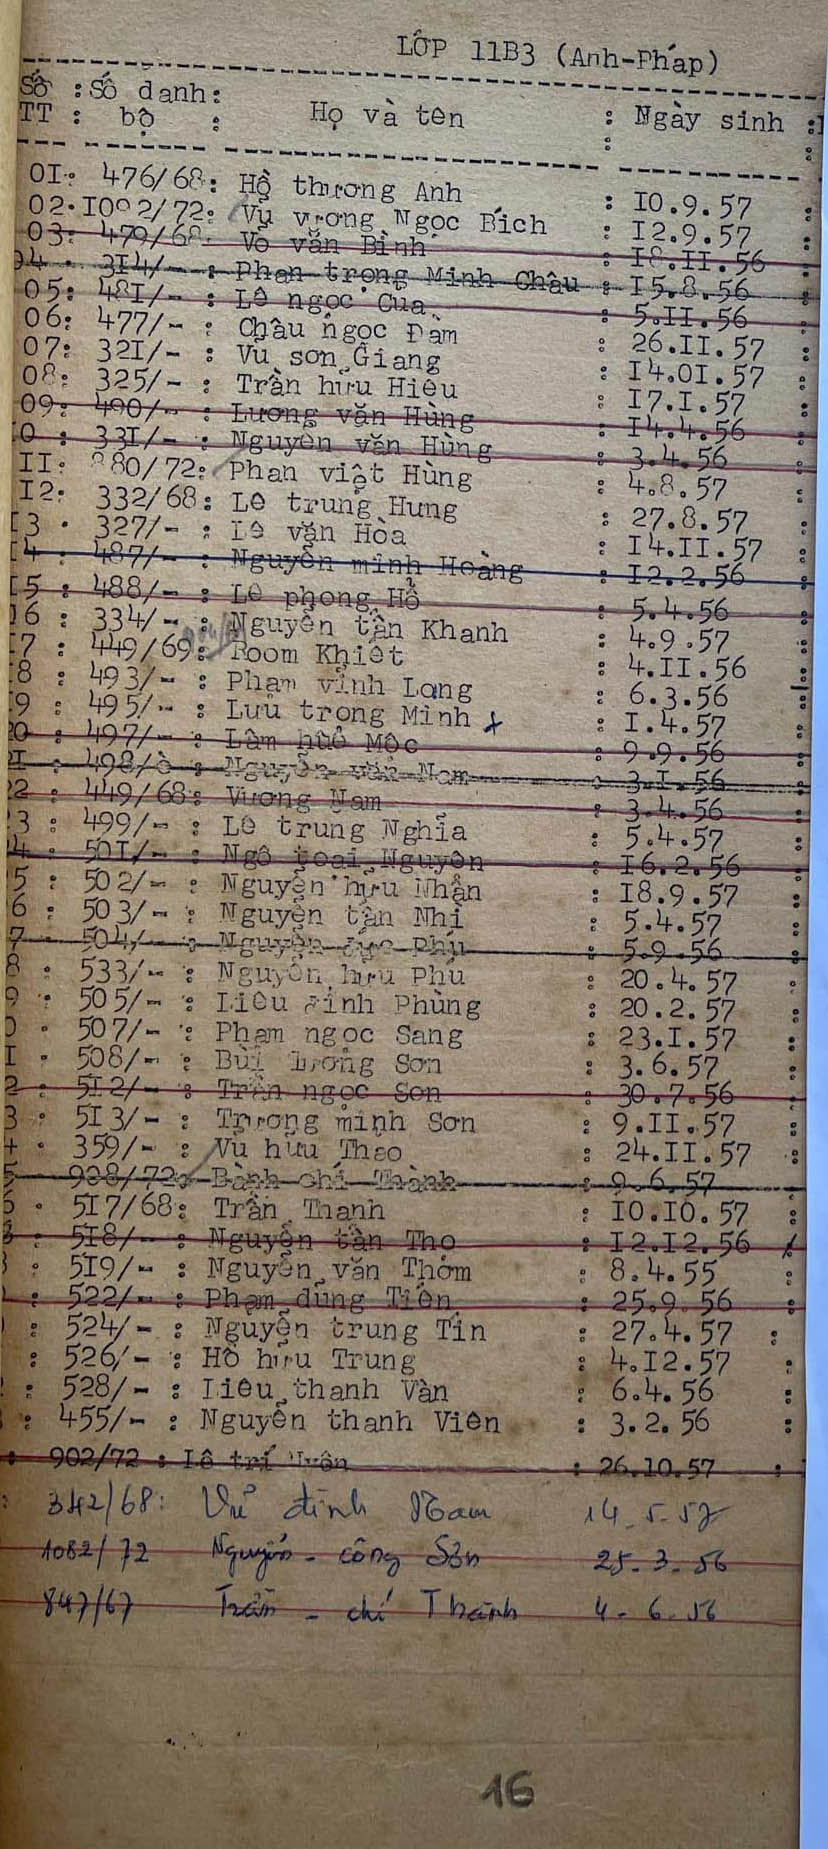 LỚP 11B3 (Anh-Pháp)
Số : Số danh :
TT : bộ : Họ và tên : Ngày sinh :
01: 476/68: Hồ thương Anh : 10.9.57 :
02. 1002/72: Vũ vương Ngọc Bích : 12.9.57 :
03: 479/68: Võ văn Bình : 18.11.56
04 . 314/- : Phan trọng Minh Châu : 15.8.56 :
05: 481/- : Lê ngọc Của : 5.11.56 :
06: 477/- : Châu ngọc Đảm : 26.11.57 :
07: 321/- : Vũ sơn Giang : 14.01.57 :
08: 325/- : Trần hữu Hiếu : 17.1.57 :
09: 490/- : Lương văn Hùng : 14.4.56 :
0 : 331/- : Nguyễn văn Hùng : 3.4.56 :
11: 880/72: Phan việt Hùng : 4.8.57 :
12: 332/68: Lê trung Hưng : 27.8.57 :
13 . 327/- : Lê văn Hòa : 14.11.57 :
4 : 487/- : Nguyễn minh Hoàng : 12.2.56 :
5 : 488/- : Lê phong Hổ : 5.4.56 :
6 : 334/- : Nguyễn tấn Khanh : 4.9.57 :
7 : 449/69: Room Khiết : 4.11.56 :
8 : 493/- : Phạm vĩnh Long : 6.3.56 :
9 : 495/- : Lưu trọng Minh : 1.4.57 :
20 : 497/- : Lâm huê Mộc : 9.9.56 :
21 : 498/è : Nguyễn văn Nam : 3.1.56 :
2 : 449/68: Vương Nam : 3.4.56 :
3 : 499/- : Lê trung Nghĩa : 5.4.57 :
4 : 501/- : Ngô toại Nguyện : 16.2.56 :
5 : 502/- : Nguyễn hữu Nhẫn : 18.9.57 :
6 : 503/- : Nguyễn tấn Nhị : 5.4.57 :
7 : 504/- : Nguyễn đức Phú : 5.9.56 :
8 : 533/- : Nguyễn hữu Phú : 20.4.57 :
9 . 505/- : Liêu sinh Phùng : 20.2.57 :
0 . 507/- : Phạm ngọc Sang : 23.1.57 :
1 . 508/- : Bùi lương Sơn : 3.6.57 :
2 : 512/- : Trần ngọc Sơn : 30.7.56 :
3 : 513/- : Trương minh Sơn : 9.11.57 :
4 . 359/- : Vũ hữu Thao : 24.11.57 :
5 908/72: Bành chí Thành : 9.6.57
6 . 517/68: Trần Thanh : 10.10.57 :
3 : 518/- : Nguyễn tấn Thọ : 12.12.56
: 519/- : Nguyễn văn Thơm : 8.4.55 :
: 522/- : Phạm dũng Tiến : 25.9.56 :
: 524/- : Nguyễn trung Tín : 27.4.57 :
: 526/- : Hồ hữu Trung : 4.12.57 :
: 528/- : Liêu thanh Vân : 6.4.56 :
: 455/- : Nguyễn thanh Viên : 3.2.56 :
: 902/72 : Lê trí : 26.10.57 :
: 342/68: Vũ đình Nam 14.5.57
1082/72 Nguyễn - công Sơn 25.3.56
847/67 Trần - chí Thành 4-6.56
16